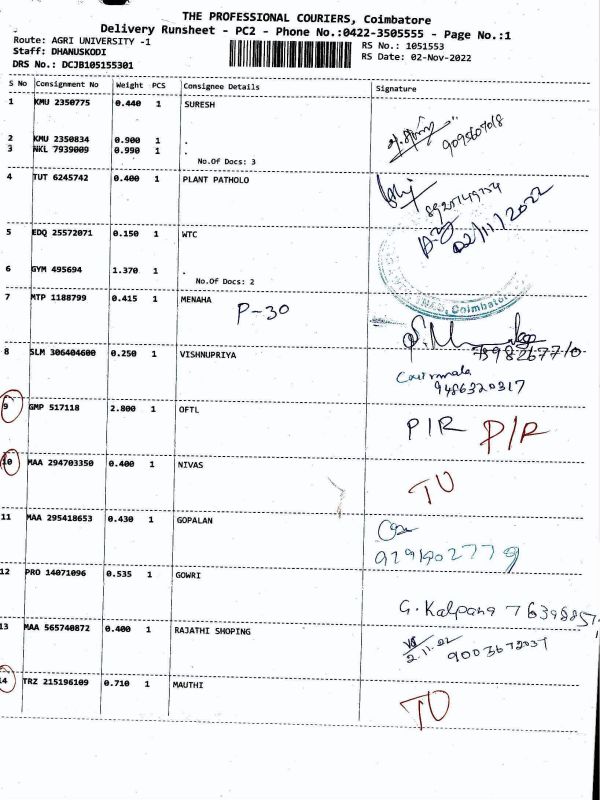 THE PROFESSIONAL COURIERS, Coimbatore
Delivery Runsheet - PC2 - Phone No.:0422-3505555 - Page No.:1
Route: AGRI UNIVERSITY -1
RS No.: 1051553
Staff: DHANUSKODI
RS Date: 02-Nov-2022
DRS No.: DCJB105155301
S No Consignment No Weight PCS Consignee Details Signature
1 KMU 2350775 0.440 1 SURESH
2 KMU 2350834 0.900 1 .
3 NKL 7939009 0.990 1 .
No.Of Docs: 3
4 TUT 6245742 0.400 1 PLANT PATHOLO
02/11/2022
5 EDQ 25572071 0.150 1 WTC
6 GYM 495694 1.370 1 .
No.Of Docs: 2
Coimbatore
7 MTP 1188799 0.415 1 MENAHA
P-30
8 SLM 306404600 0.250 1 VISHNUPRIYA
9486320317
9 GMP 517118 2.800 1 OFTL
P/R P/R
10 MAA 294703350 0.400 1 NIVAS
TO
11 MAA 295418653 0.430 1 GOPALAN
12 PRO 14071096 0.535 1 GOWRI
G. Kalpana
13 MAA 565740872 0.400 1 RAJATHI SHOPING
2.11.22
14 TRZ 215196109 0.710 1 MAUTHI
TO